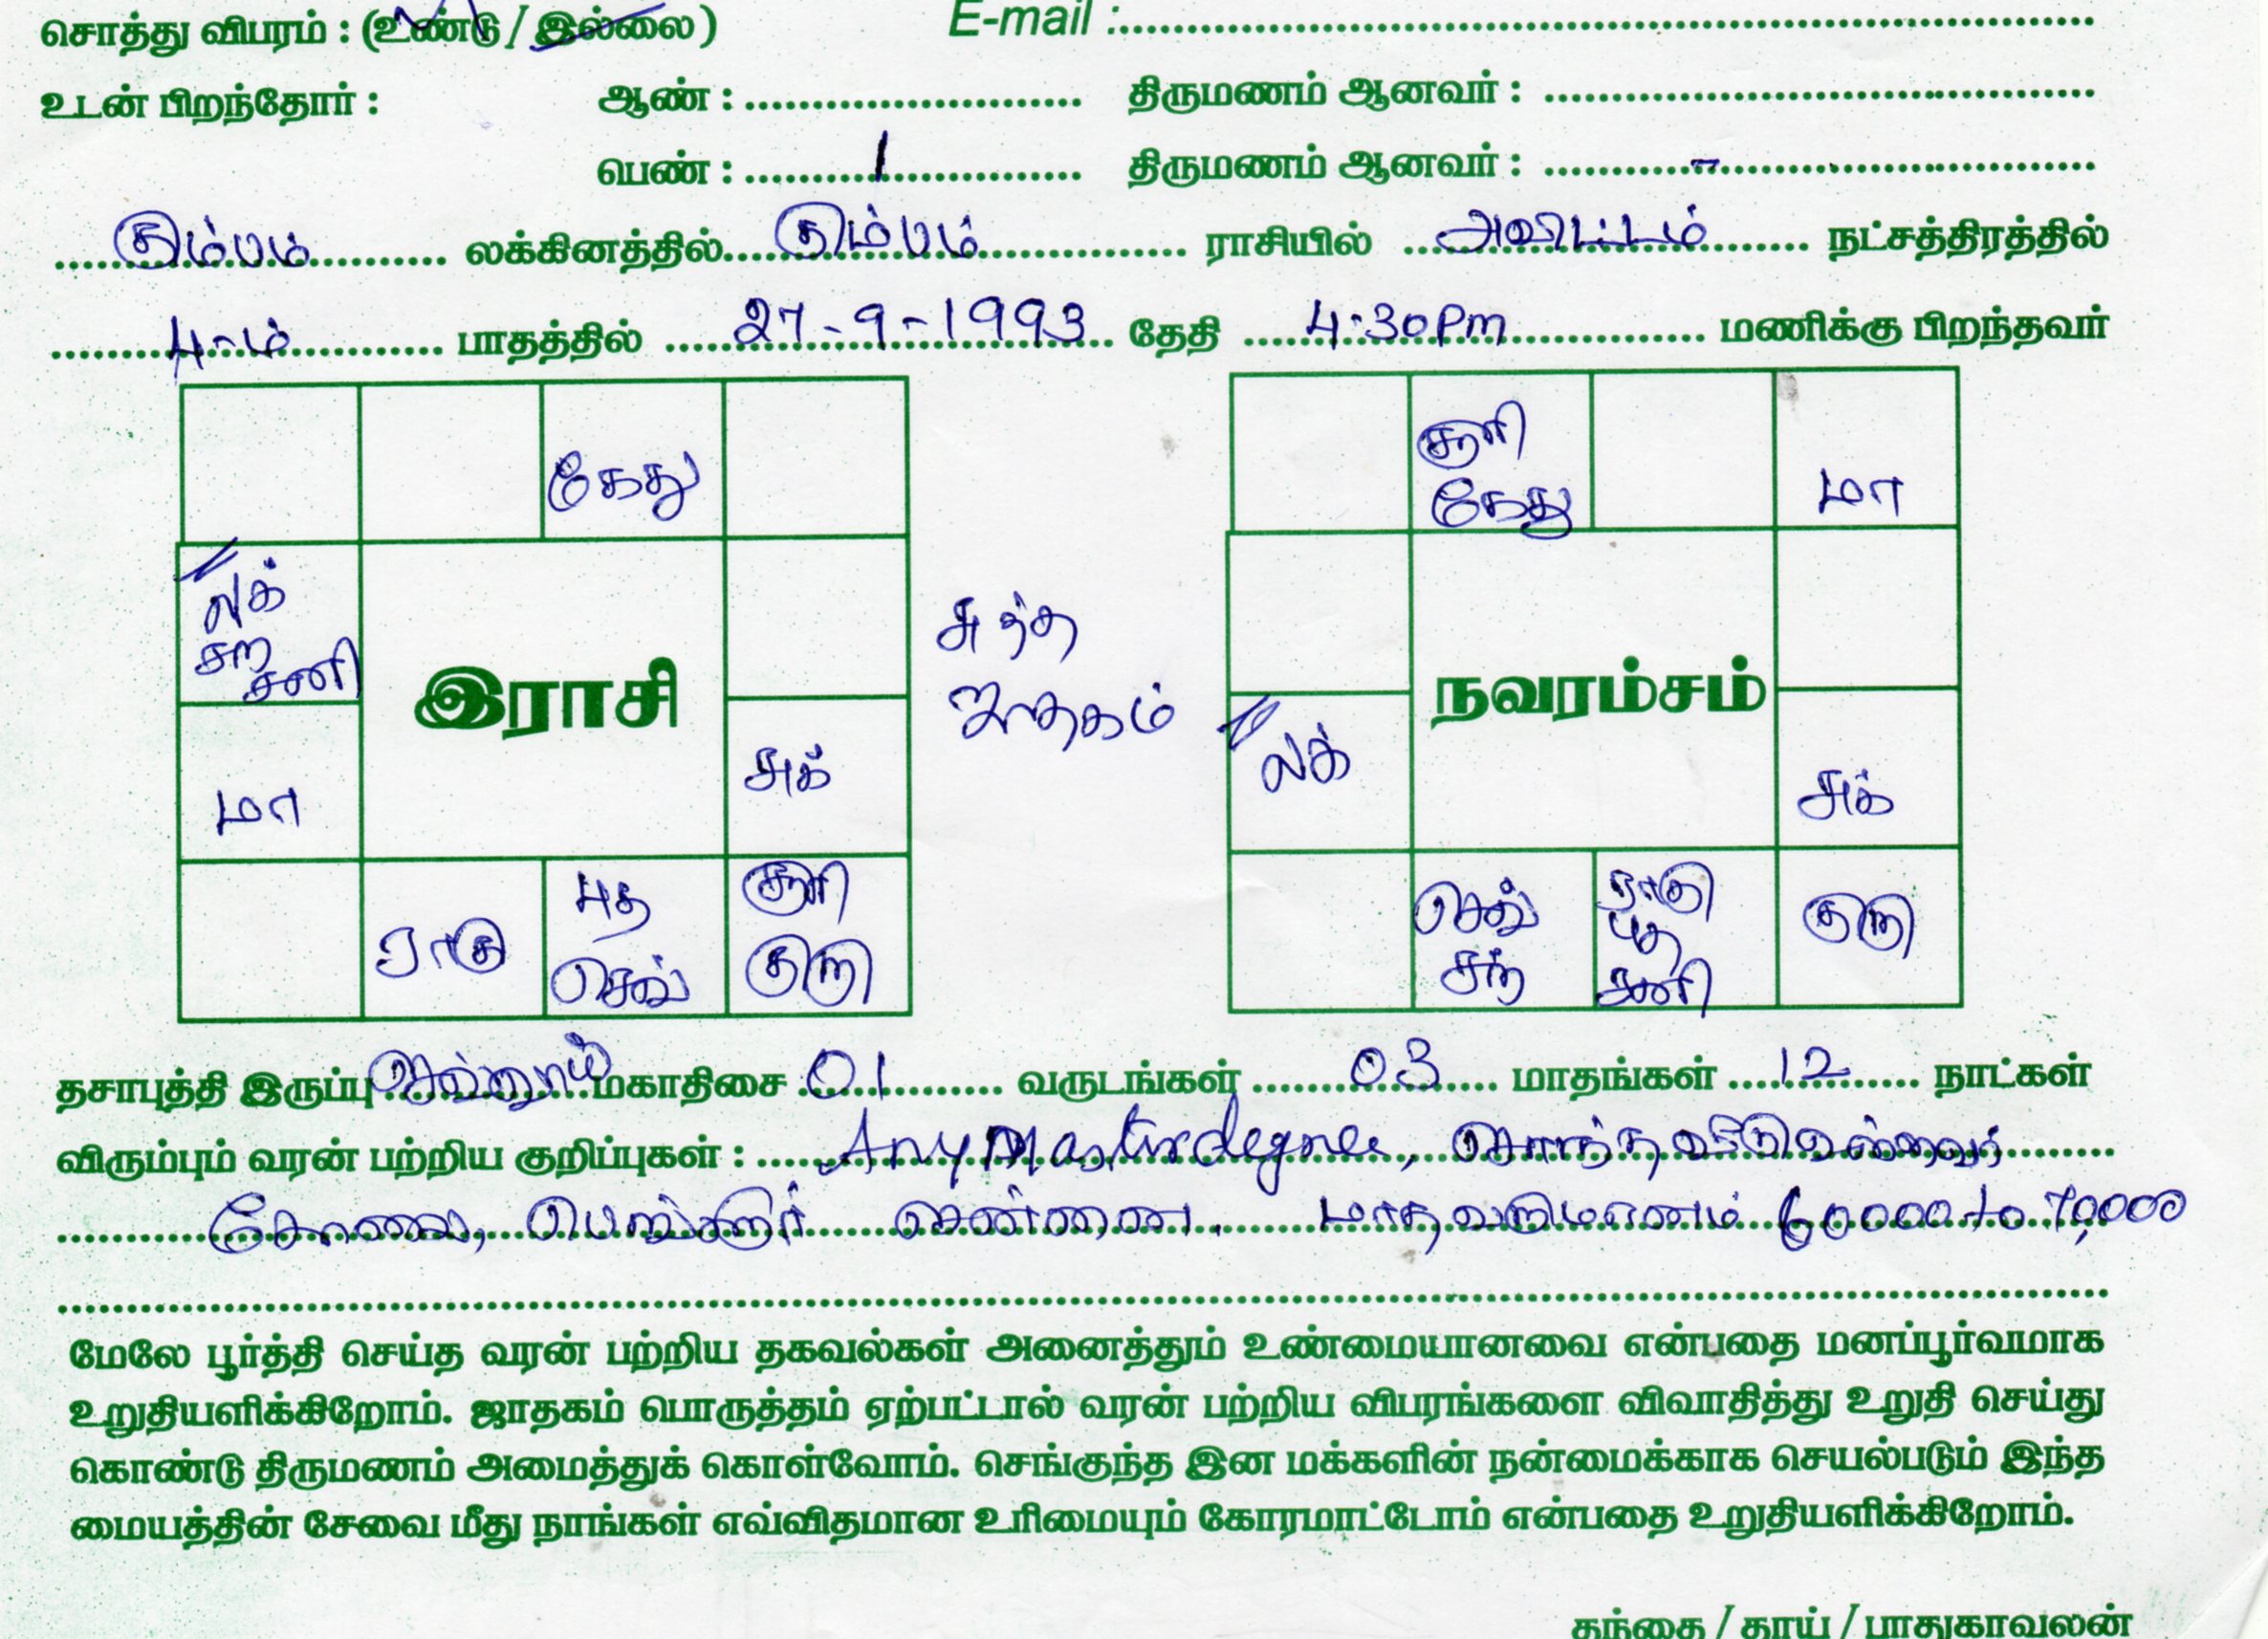 சொத்து விபரம் : (உண்டு / இல்லை) E-mail :
உடன் பிறந்தோர் : ஆண் : திருமணம் ஆனவர் :
பெண் : 1 திருமணம் ஆனவர் : -
கும்பம் லக்கினத்தில் கும்பம் ராசியில் அவிட்டம் நட்சத்திரத்தில்
4-ம் பாதத்தில் 27-9-1993 தேதி 4.30 Pm மணிக்கு பிறந்தவர்
கேது
லக்
சந்
சனி
இராசி
மா
சுக்
ராகு
புத
செவ்
சூரி
குரு
சுத்த
ஜாதகம்
சூரி
கேது
மா
நவரம்சம்
லக்
சுக்
செவ்
சந்
ராகு
புத
சனி
குரு
தசாபுத்தி இருப்பு செவ்வாய் மகாதிசை 01 வருடங்கள் 03 மாதங்கள் 12 நாட்கள்
விரும்பும் வரன் பற்றிய குறிப்புகள் : Any Master degree, சொந்த வீடு
கோவை, பெங்களூர் சென்னை. மாத வருமானம் 60000 to 70,000
மேலே பூர்த்தி செய்த வரன் பற்றிய தகவல்கள் அனைத்தும் உண்மையானவை என்பதை மனப்பூர்வமாக
உறுதியளிக்கிறோம். ஜாதகம் பொருத்தம் ஏற்பட்டால் வரன் பற்றிய விபரங்களை விவாதித்து உறுதி செய்து
கொண்டு திருமணம் அமைத்துக் கொள்வோம். செங்குந்த இன மக்களின் நன்மைக்காக செயல்படும் இந்த
மையத்தின் சேவை மீது நாங்கள் எவ்விதமான உரிமையும் கோரமாட்டோம் என்பதை உறுதியளிக்கிறோம்.
தந்தை / தாய் / பாதுகாவலன்